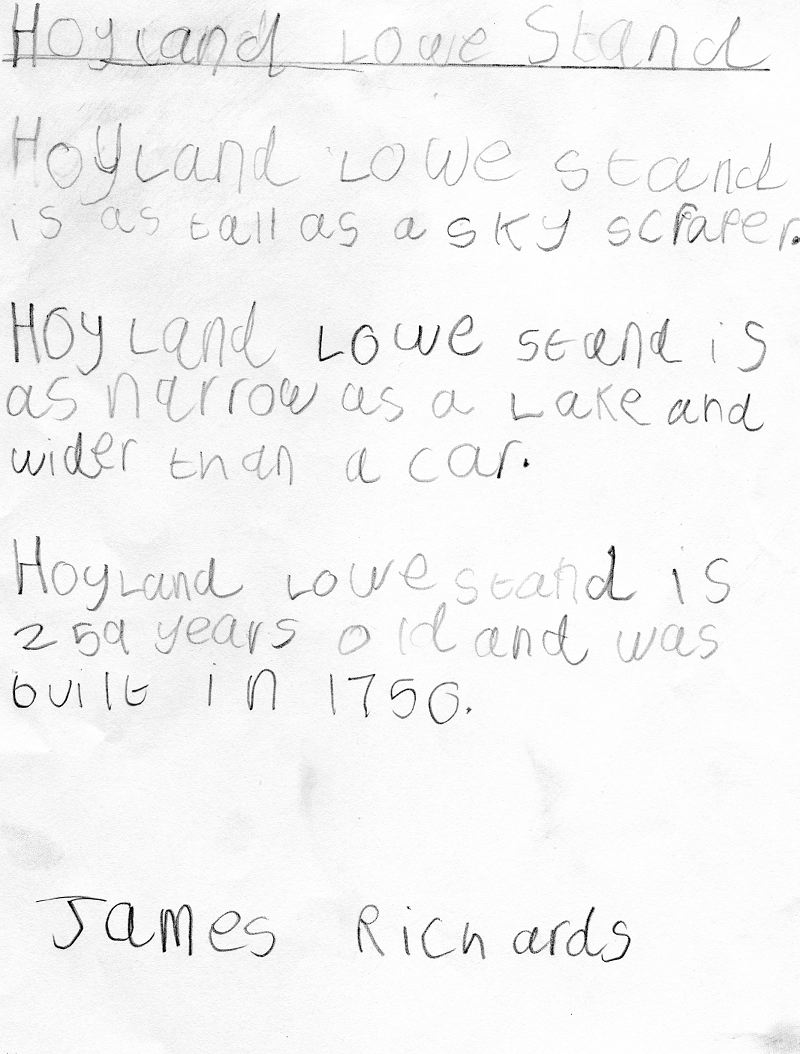 Hoyland Lowe Stand
Hoyland Lowe Stand
is as tall as a sky scraper.
Hoyland Lowe Stand is
as narrow as a Lake and
wider than a car.
Hoyland Lowe Stand is
259 years old and was
built in 1750.
James Richards